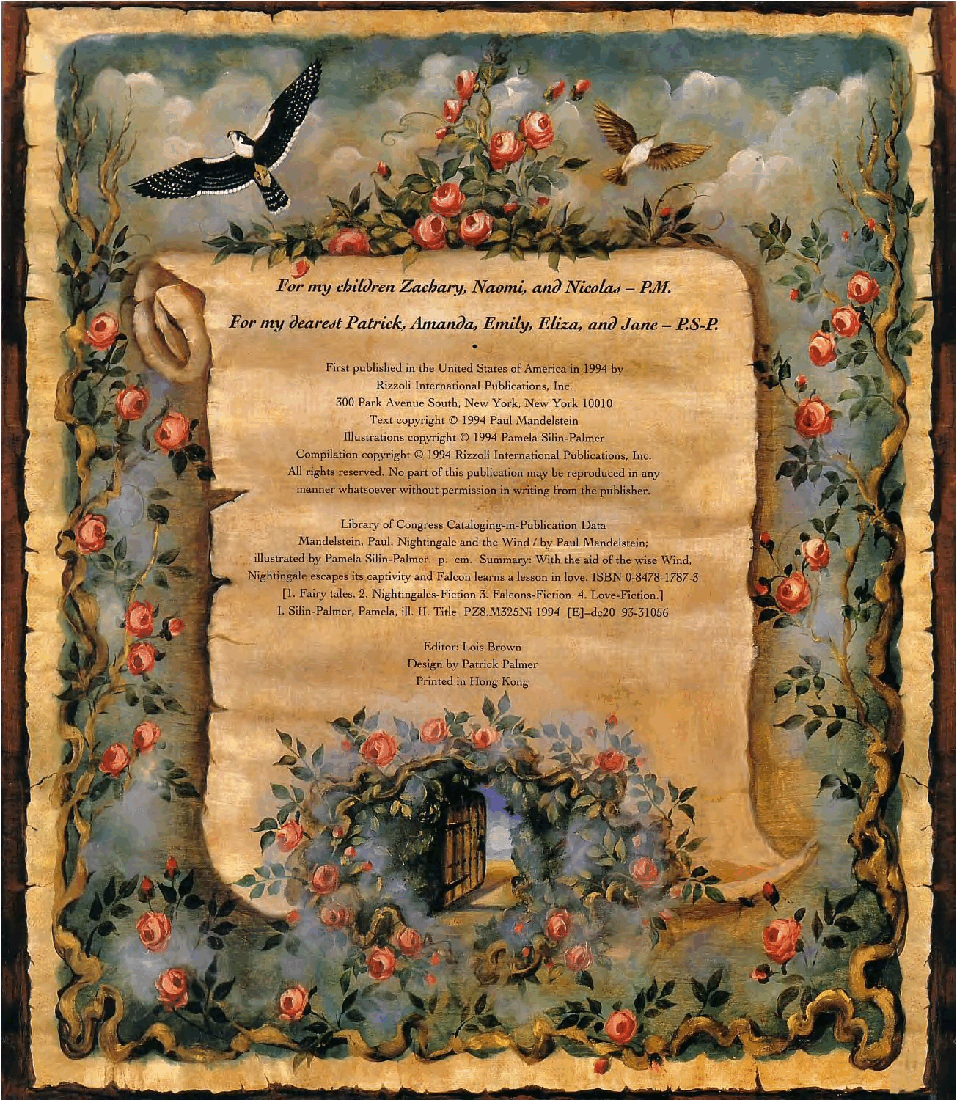 For my children Zachary, Naomi, and Nicolas – P.M.
For my dearest Patrick, Amanda, Emily, Eliza, and Jane – P.S-P.
•
First published in the United States of America in 1994 by
Rizzoli International Publications, Inc.
300 Park Avenue South, New York, New York 10010
Text copyright © 1994 Paul Mandelstein
Illustrations copyright © 1994 Pamela Silin-Palmer
Compilation copyright © 1994 Rizzoli International Publications, Inc.
All rights reserved. No part of this publication may be reproduced in any
manner whatsoever without permission in writing from the publisher.
Library of Congress Cataloging-in-Publication Data
Mandelstein, Paul. Nightingale and the Wind / by Paul Mandelstein;
illustrated by Pamela Silin-Palmer. p. cm. Summary: With the aid of the wise Wind,
Nightingale escapes its captivity and Falcon learns a lesson in love. ISBN 0-8478-1787-3
[1. Fairy tales. 2. Nightingales-Fiction 3. Falcons-Fiction. 4. Love-Fiction.]
I. Silin-Palmer, Pamela, ill. II. Title. PZ8.M325Ni 1994 [E]–dc20 93-31056
Editor: Lois Brown
Design by Patrick Palmer
Printed in Hong Kong